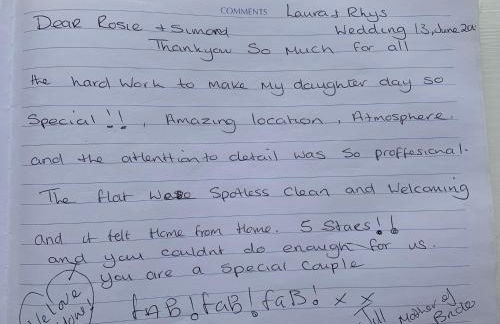 COMMENTS Laura & Rhys
Dear Rosie + Simond Wedding 13, June 20
Thankyou So Much for all
the hard work to make my daughter day so
Special!! , Amazing location, Atmosphere.
and the attenttion to detail was so proffesional.
The flat was Spotless Clean and Welcoming
and it felt Home from Home. 5 Staes!!
and you couldnt do enough for us.
you are a Special Couple
We love you!
fAB! faB! faB! x x
Mother of
Bride